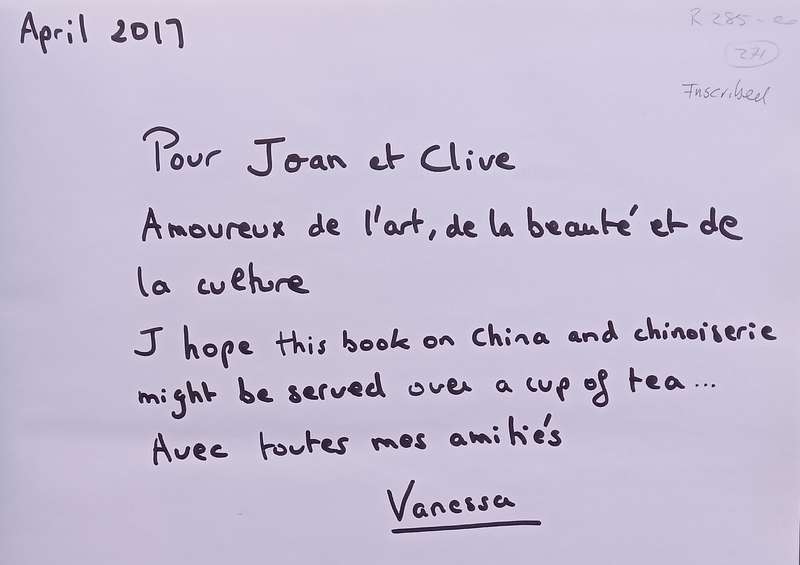 April 2017
R 285-00
271
Inscribed
Pour Joan et Clive
Amoureux de l'art, de la beauté et de
la culture
I hope this book on China and chinoiserie
might be served over a cup of tea...
Avec toutes mes amitiés
Vanessa